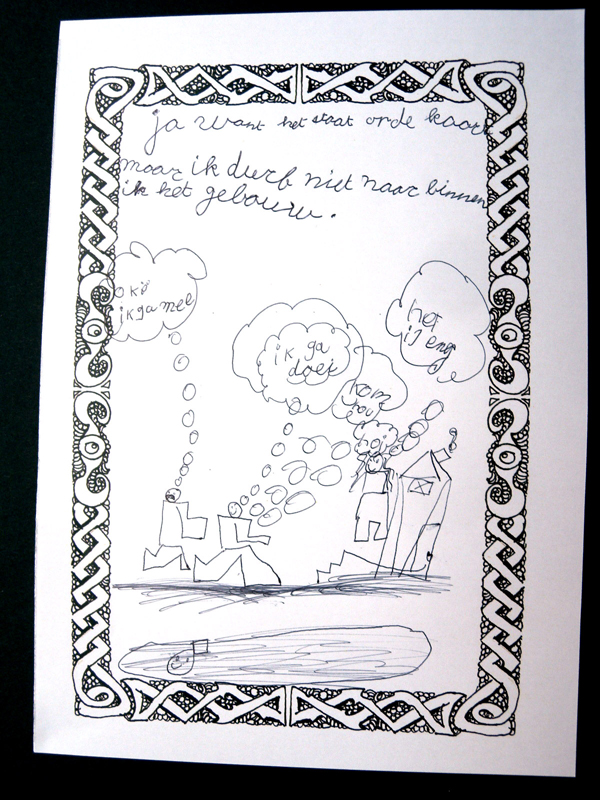 ja want het staat op de kaart
maar ik durf niet naar binnen
ik het gebouw.
oké
ik ga mee
ik ga
doei
kom
nou
het
is eng
hoi